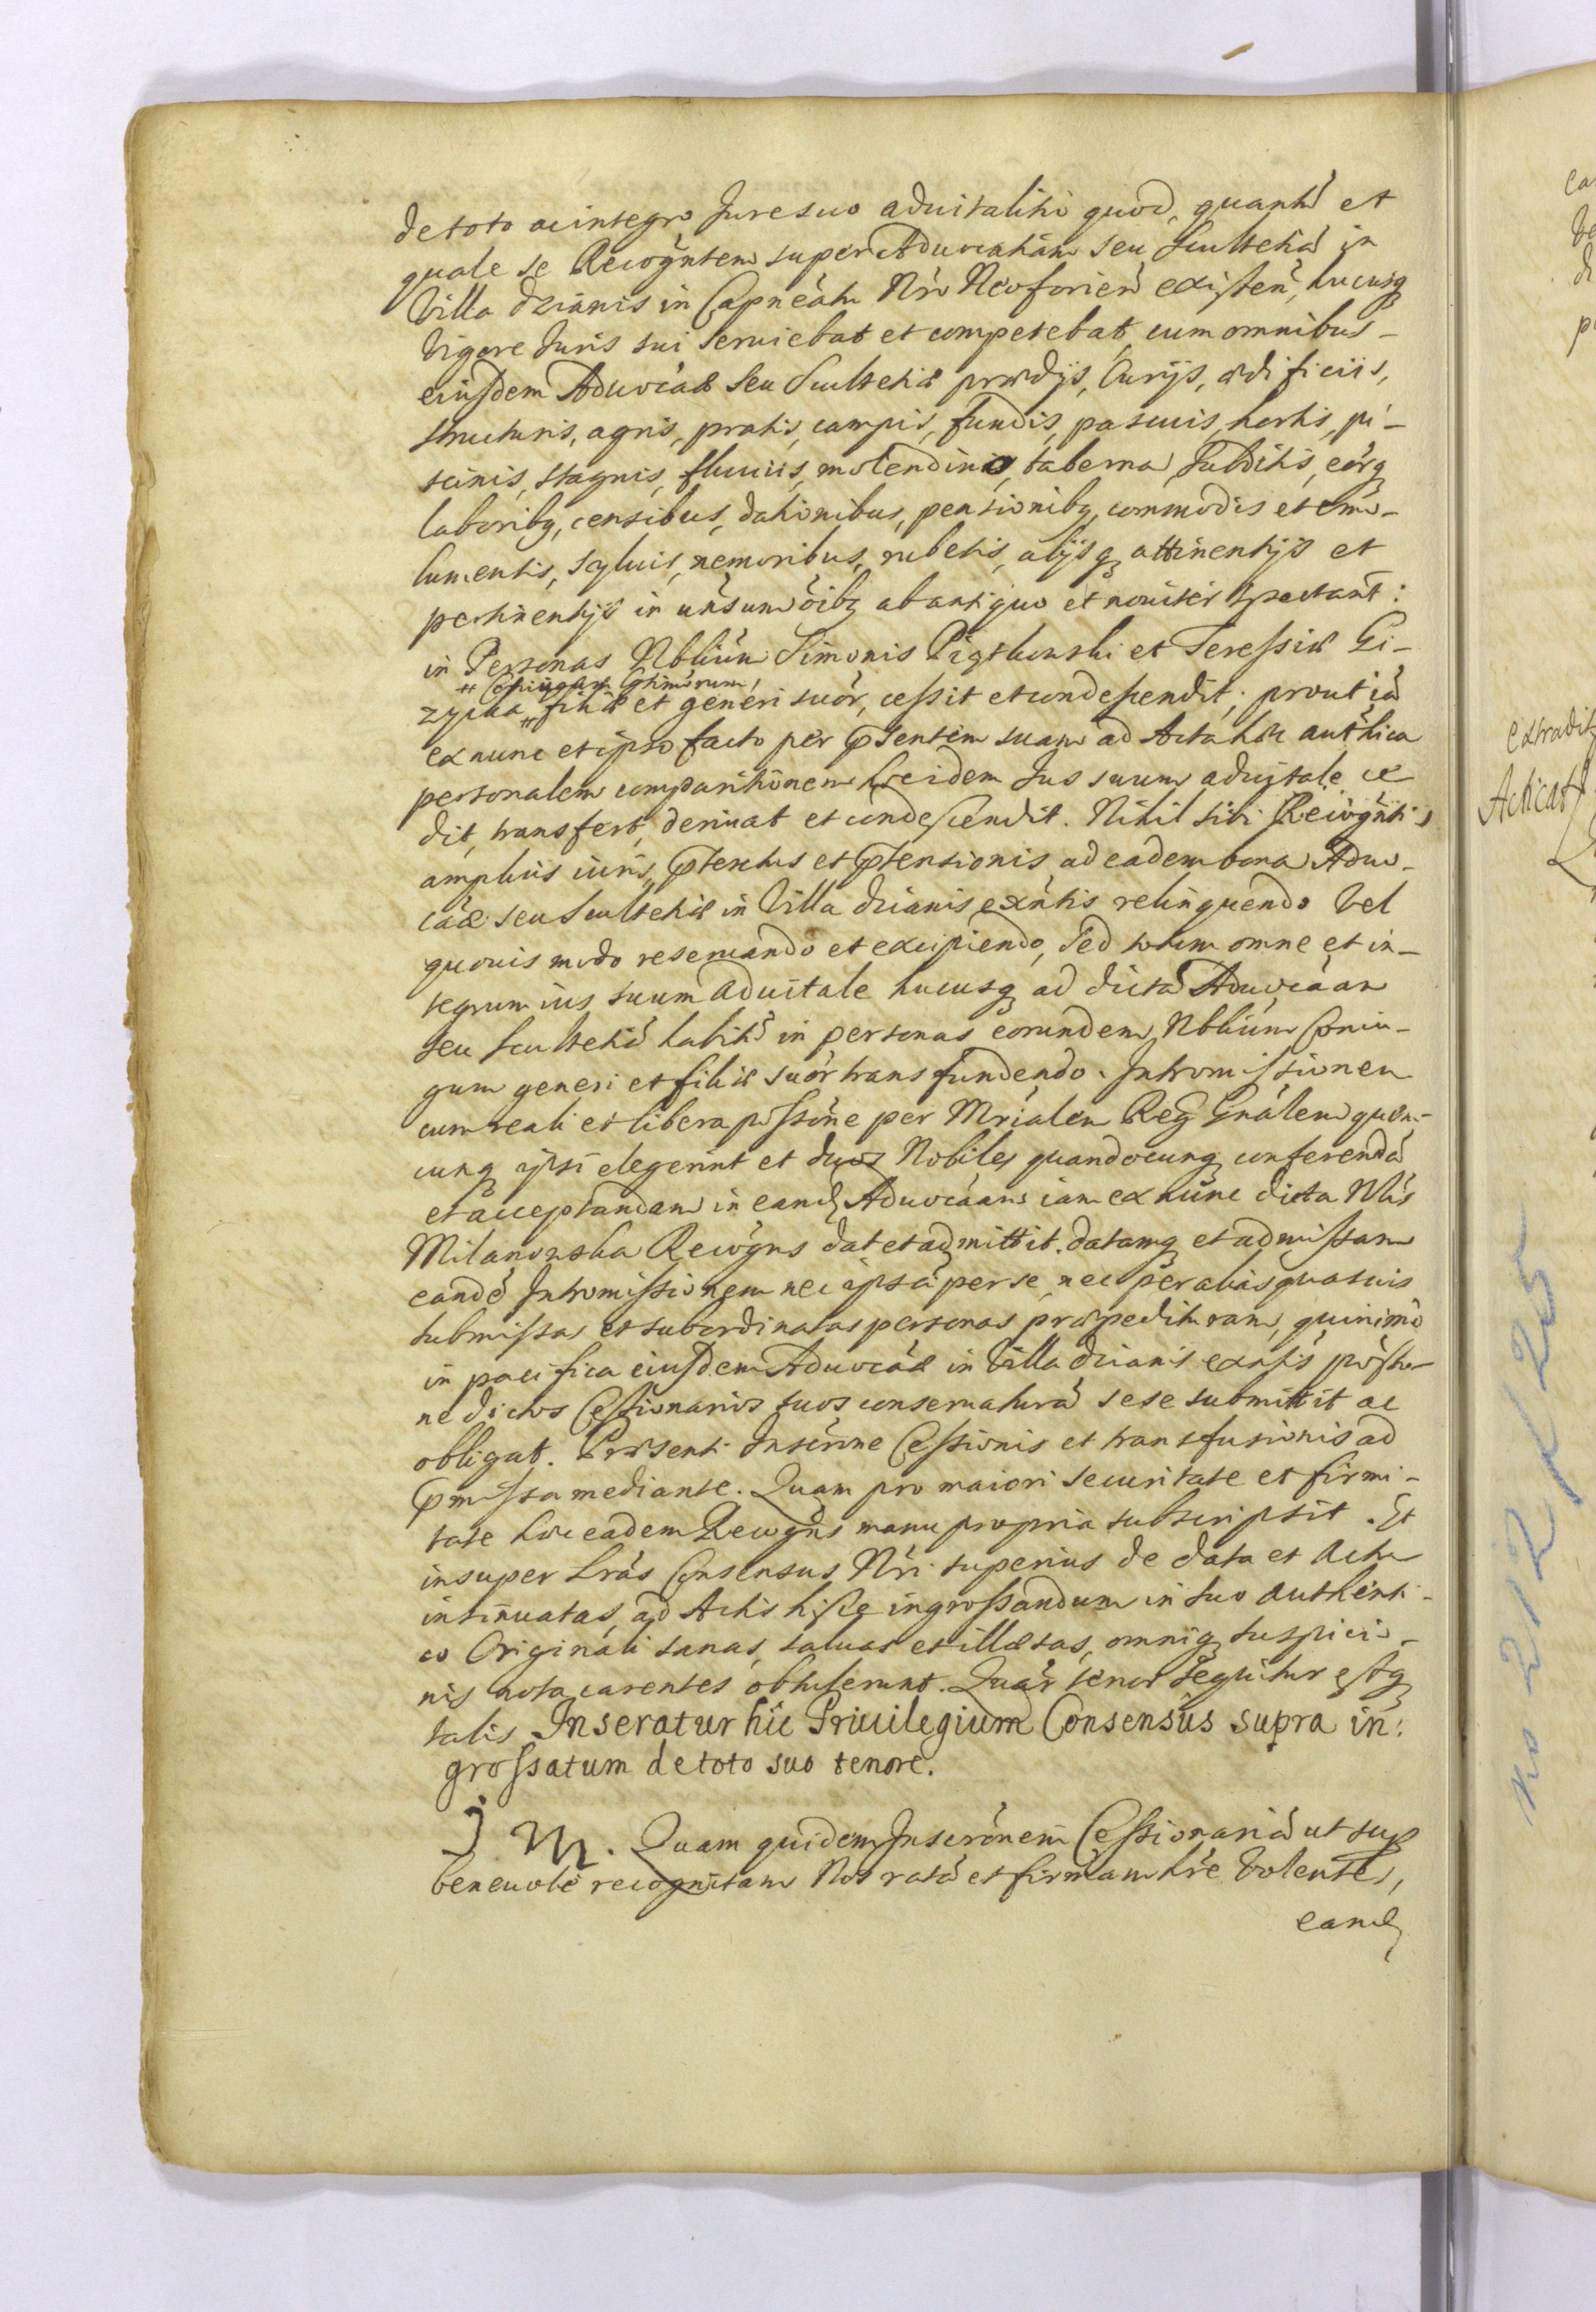 de toto ac integro Jure suo aduitalitio quod, quantū et
quale se Recogntem super Aduocatiam seu Scultetiā in
Villa Dzianis in Capneātu Nro Neoforień existeñ, hucusq
Vigore Juris sui seruiebat et competebat, cum omnibus-
eiusdem Aduocāæ seu Scultetiæ prædijs, Curijs, ædificiis,
structuris, agris, pratis, campis, fundis, pascuis, hortis, pi-
scinis, stagnis, fluuiis, molendinis, taberna, Subditis, eorq
laboribq, censibus, dationibus, pensionibq, commodis et emo-
lumentis, syluis, nemoribus, rubetis, alijsq attinentijs et
pertinentijs in uńsum oibq ab antiquo et nouiter spectant:
in Personas Nbliūm Simonis Pigłowski et Teressiæ Gi-
++ Coniugum Gtimorum,
zycka, ++ filiæ et generi suor, cessit et condescendit; prout iā
ex nunc et ipso facto per pńsentem suam ad Acta hæc authica
personalem comparitionem hæc idem Jus suum aduitale ce
dit, transfert, deriuat et condescendit. Nihil sibi Recogntis
amplius iuris, ptextus et ptensionis ad eadem bona Aduo-
cāæ seu Scultetiæ in Villa Dzianis exntis relinquendo vel
quouis modo reseruando et excipiendo, Sed totum omne et in-
tegrum ius suum aduitale hucusq ad dictā Aduocāam
seu Scultetiā habitū in personas eorundem Nbliūm Coniu-
gum generi et filiæ suor transfundendo. Intromissionem
cum reali et libera possōne per Mrialem Reg Gnalem quem-
cunq ipsi elegerint et duos Nobiles quandocunq conferendā
et acceptandam in eand Aduocāam iam ex nunc dicta Nlis
Milanowska Recogns dat et admittit. datamq et admissam
eandē Intromissionem nec ipsa per se, nec per alias quasuis
submissas et subordinatas personas præpedituram, quinimō
in pacifica eiusdem Aduocāæ in Villa Dzianis exntis possio-
ne dictos Cessionarios suos conseruaturā sese submittit ac
obligat. Præsenti Inscrōne Cessionis et transfusionis ad
pmissa mediante. Quam pro maiori securitate et firmi-
tate hæc eadem Recogns manu propria subscripsit. Et
insuper Lrās Consensus Nri superius de data et Actu
insinuatas, ad Actis hisce ingrossandum in suo authenti-
co Originali sanas, saluas et illæsas, omniq suspicio-
nis nota carentes obtulerunt. Quar tenor sequitur estq
talis Inseratur hic Priuilegium Consensus supra in:
grossatum de toto suo tenore.
J N. Quam quidem Inscrōnem Cessionariā ut sup
beneuole recognitam Nos ratā et firmam hre Volentes,
eand
extradit
Acticat